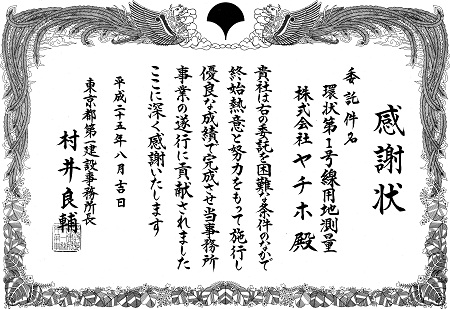 感謝状
委託件名
環状第1号線用地測量
株式会社ヤチホ殿
貴社は右の委託を困難な条件のなかで
終始熱意と努力をもって施行し
優良な成績で完成させ当事務所
事業の遂行に貢献されました
ここに深く感謝いたします
平成二十五年八月吉日
東京都第一建設事務所長
村井良輔